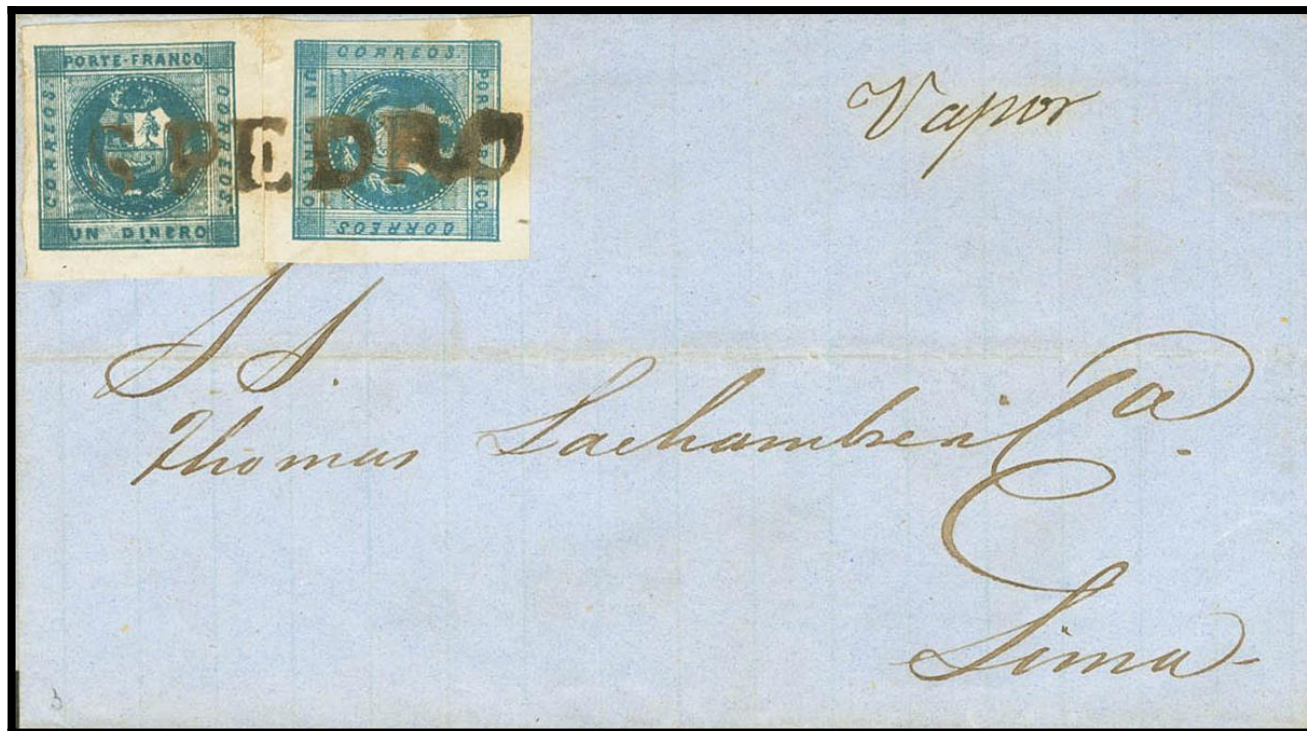 PORTE-FRANCO
CORREOS
CORREOS
UN DINERO
CORREOS
PORTE FRANCO
UN DINERO
CORREOS
S PEDRO
Vapor
S S.
Thomas Lachambre i Ca.
Lima
3